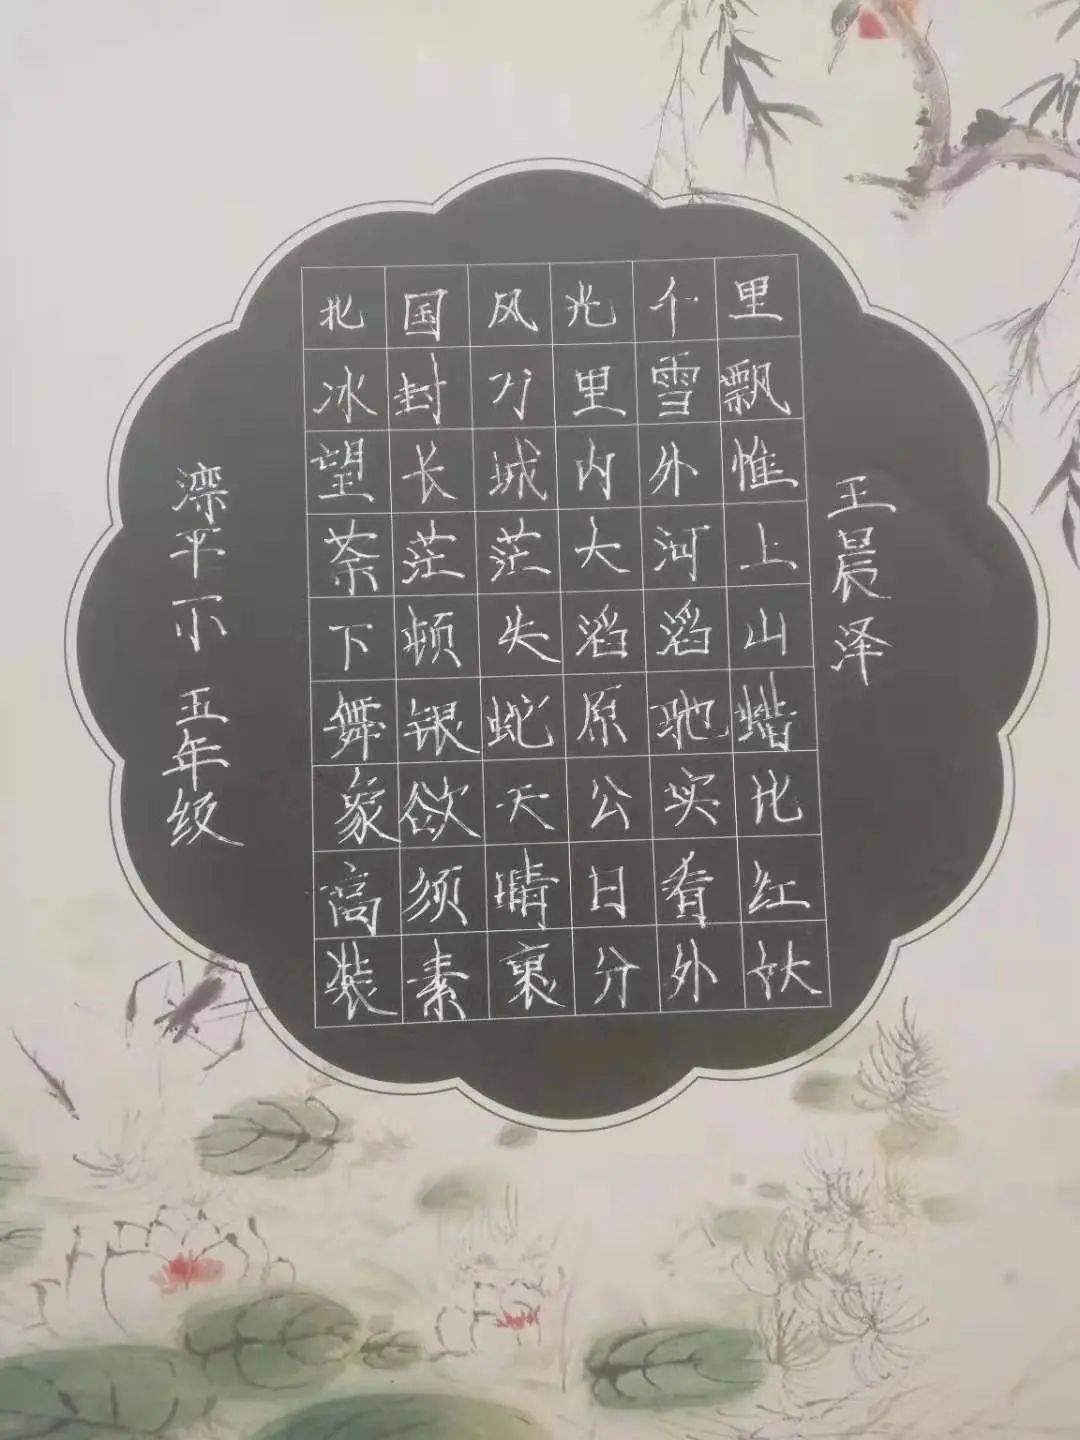 北国风光个里
冰封万里雪飘
望长城内外惟
荼茫茫大河上
下顿失滔滔山
舞银蛇原驰蜡
象欲天公实比
高须晴日看红
装素裹分外妖
滦平一小 五年级
王晨泽